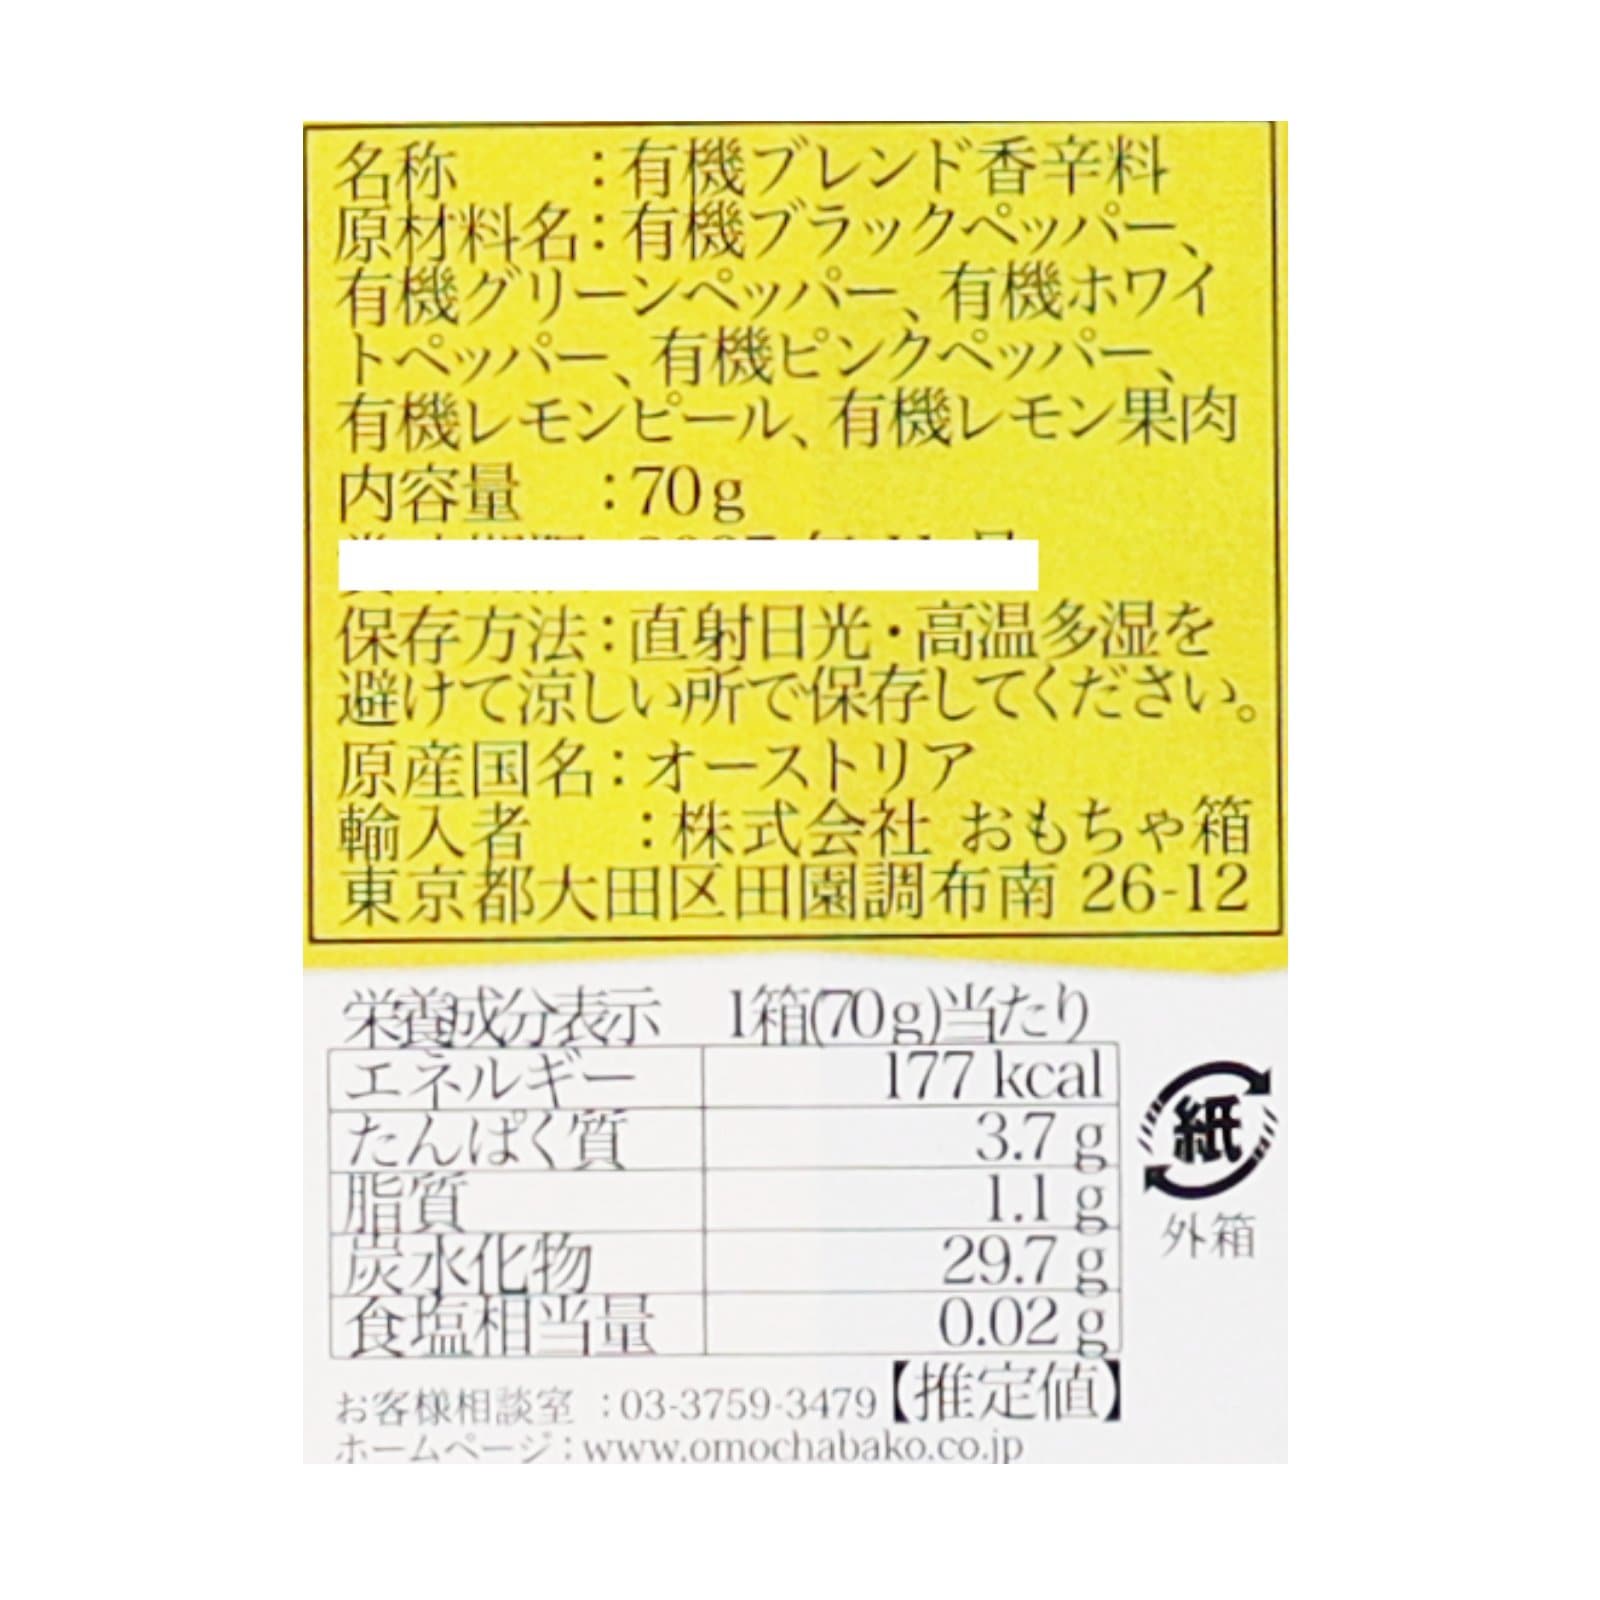 名称　　：有機ブレンド香辛料
原材料名：有機ブラックペッパー、
有機グリーンペッパー、有機ホワイ
トペッパー、有機ピンクペッパー、
有機レモンピール、有機レモン果肉
内容量　：70g
保存方法：直射日光・高温多湿を
避けて涼しい所で保存してください。
原産国名：オーストリア
輸入者　：株式会社 おもちゃ箱
東京都大田区田園調布南 26-12
栄養成分表示　1箱(70g)当たり
エネルギー 177 kcal
たんぱく質 3.7 g
脂質 1.1 g
炭水化物 29.7 g
食塩相当量 0.02 g
紙
外箱
【推定値】
お客様相談室 ：03-3759-3479
ホームページ：www.omochabako.co.jp